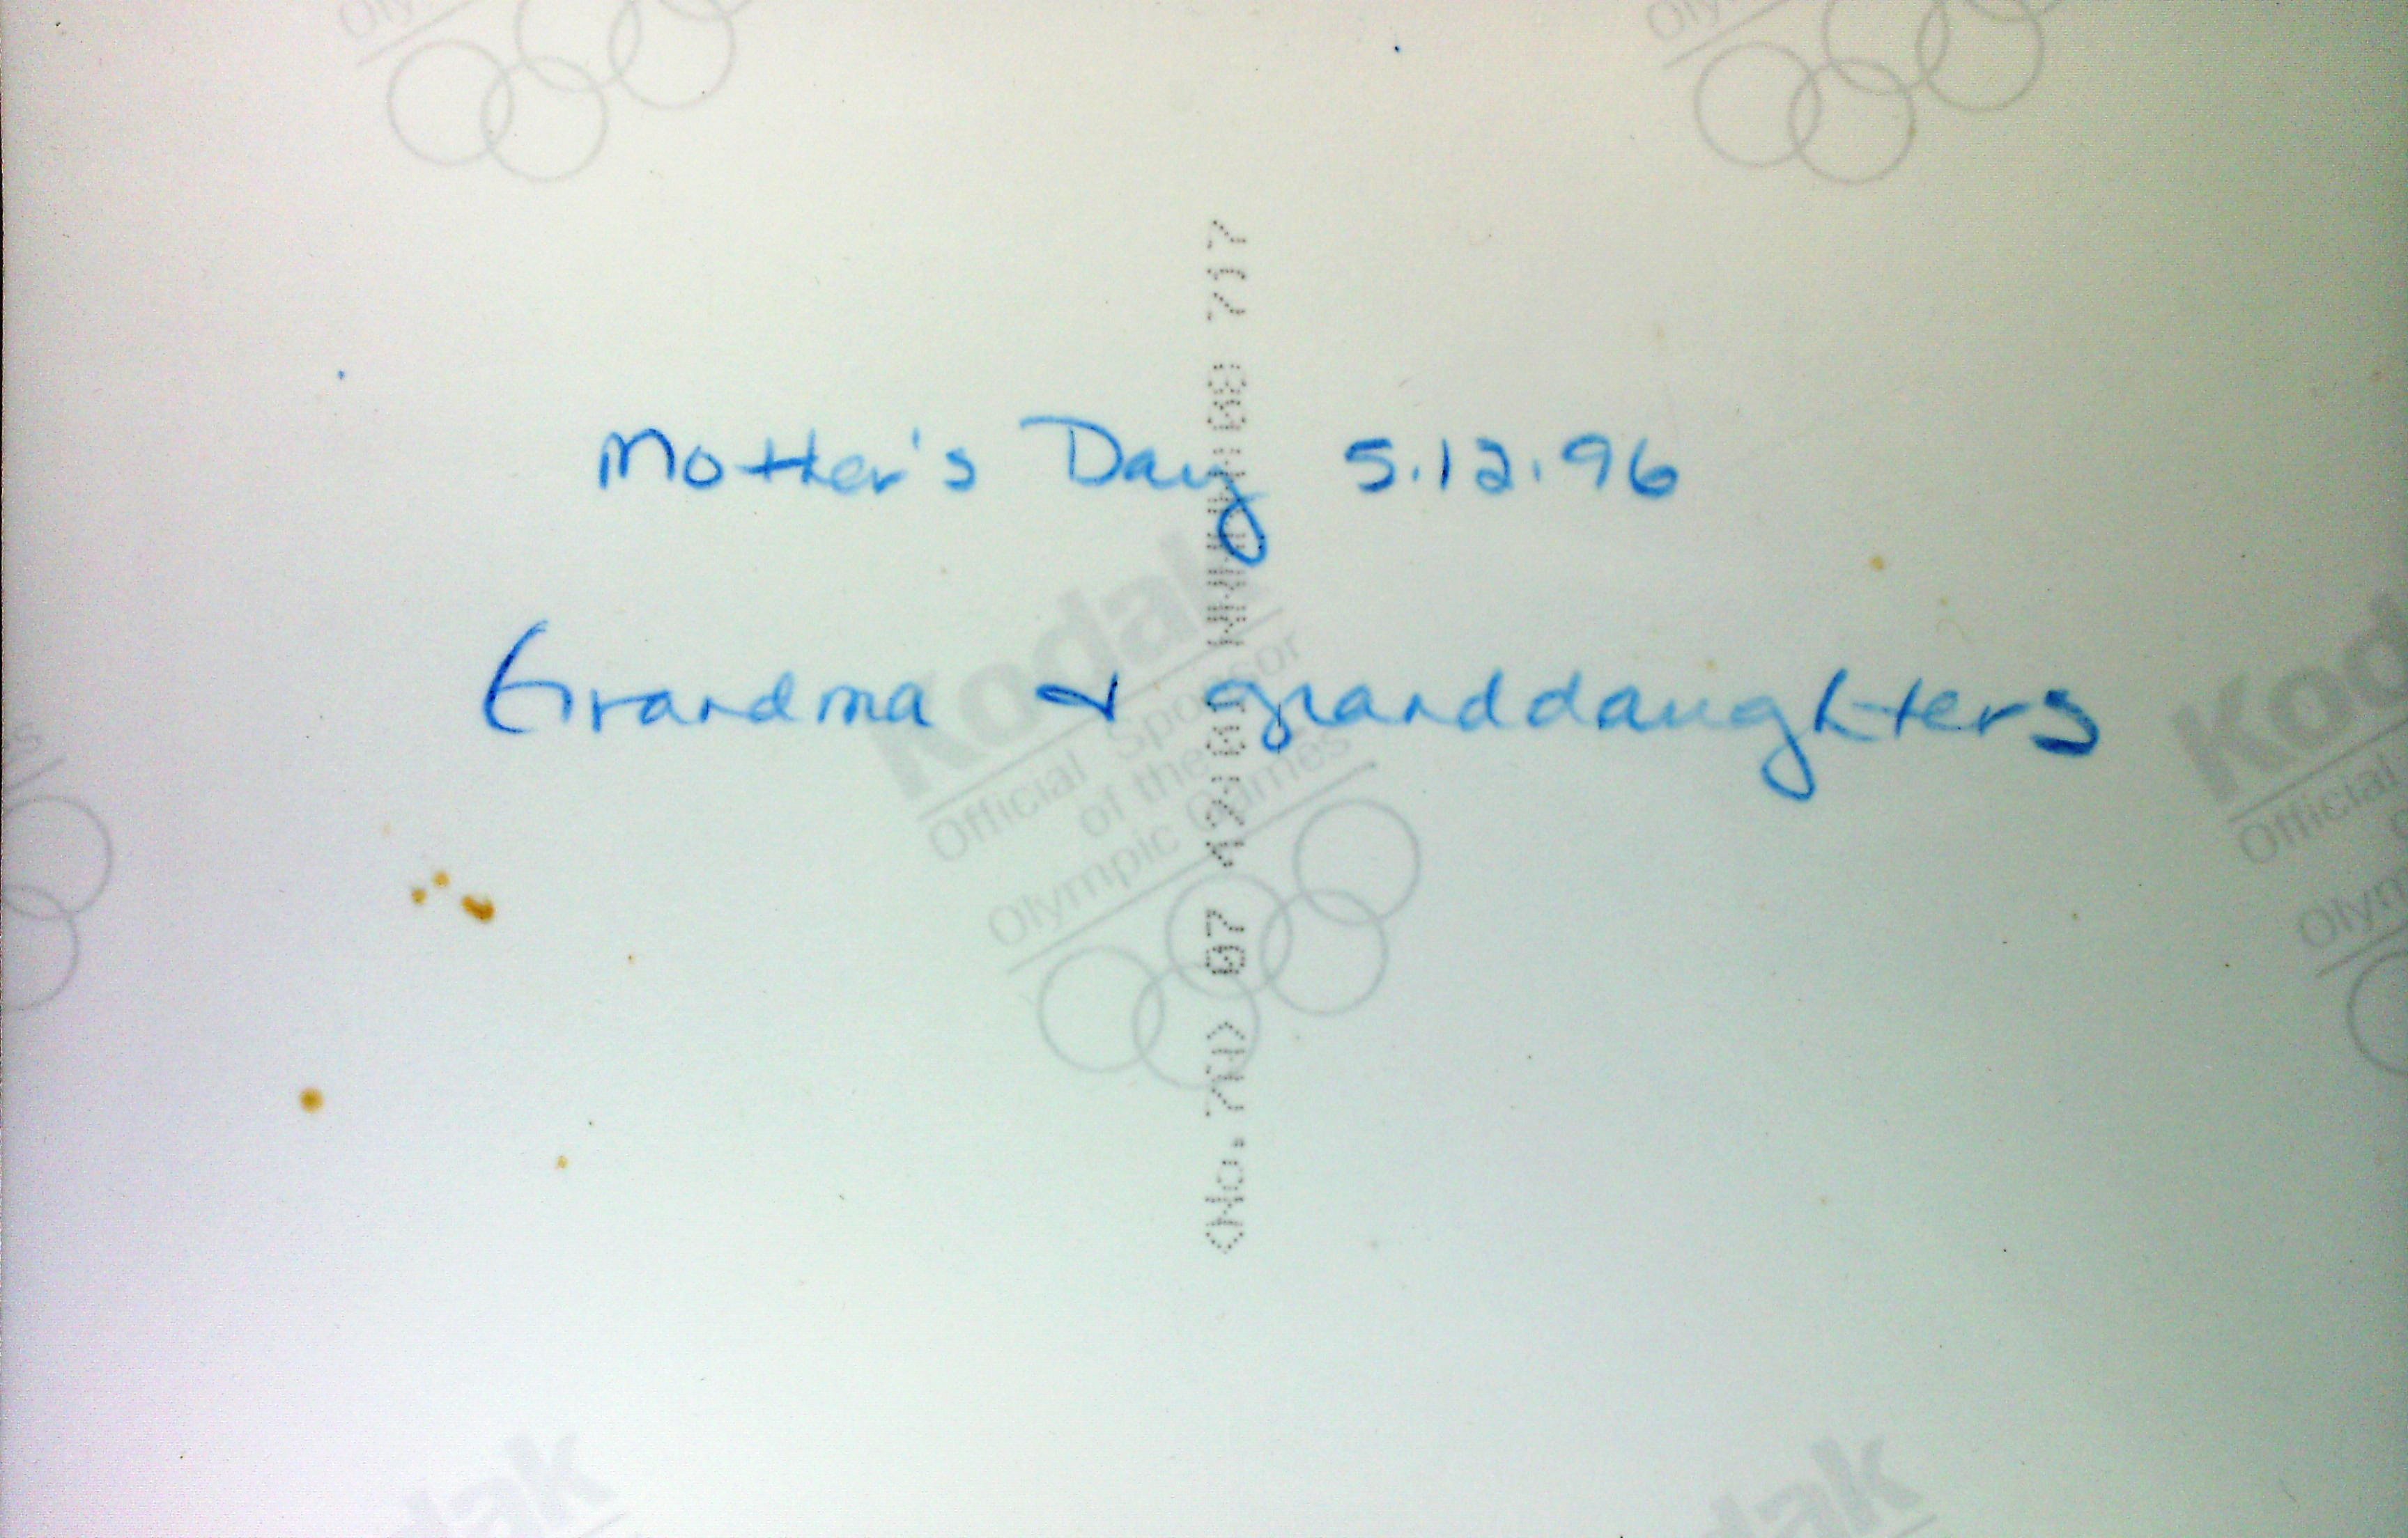 Mother's Day 5.12.96
Grandma & granddaughters
Kodak
Official Sponsor
of the
Olympic Games